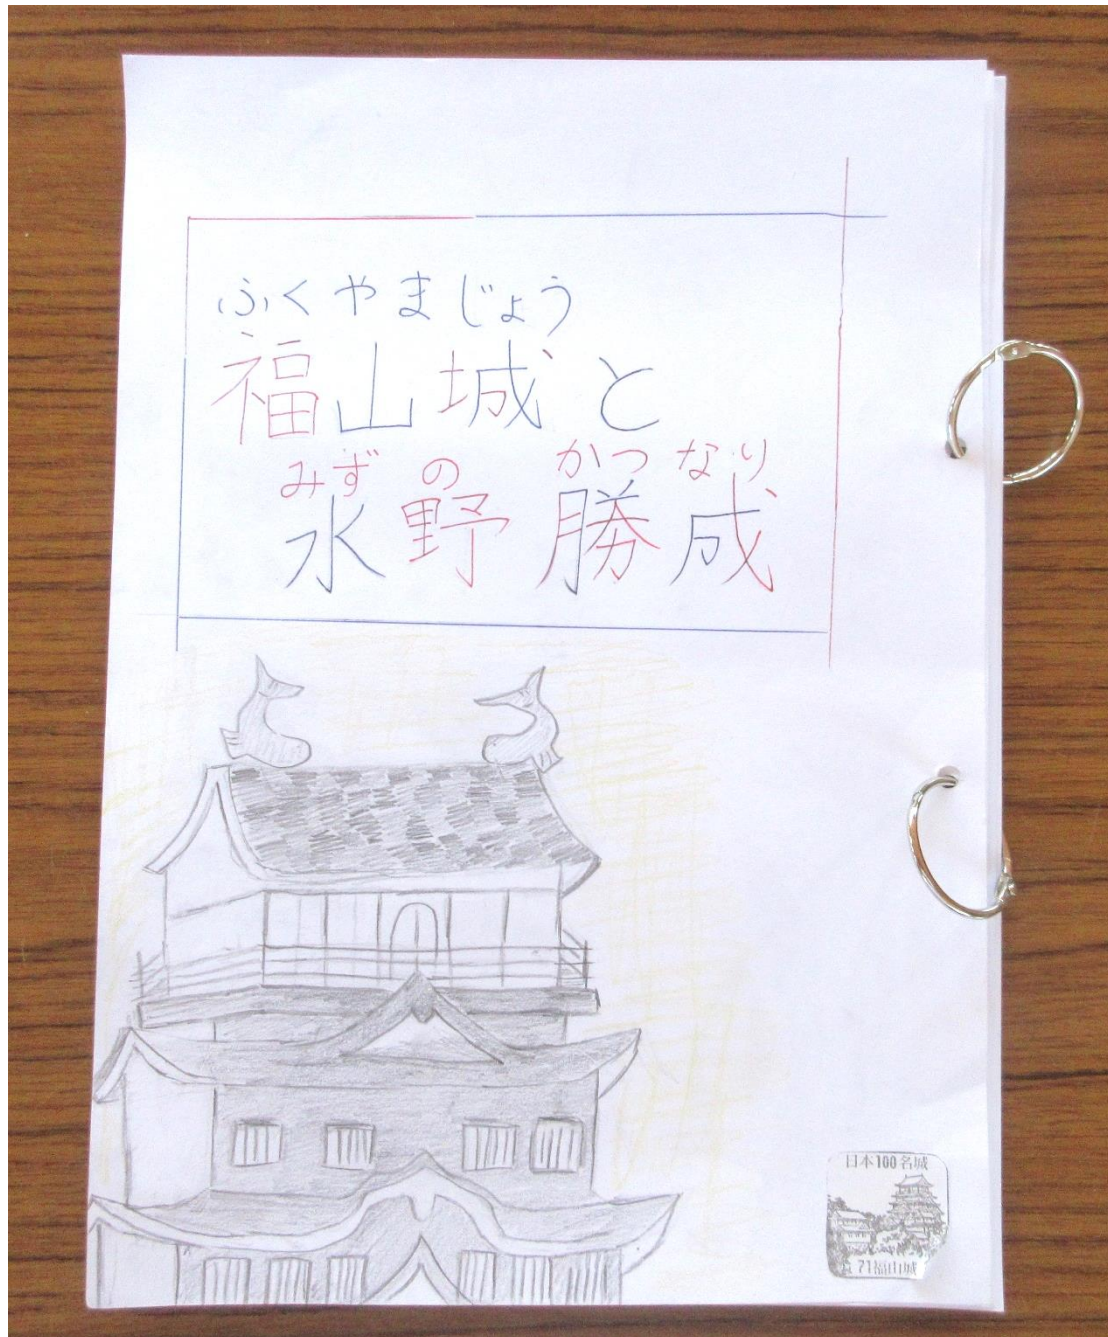 ふくやまじょう
福山城と
みずの かつなり
水野勝成
日本100名城
71福山城